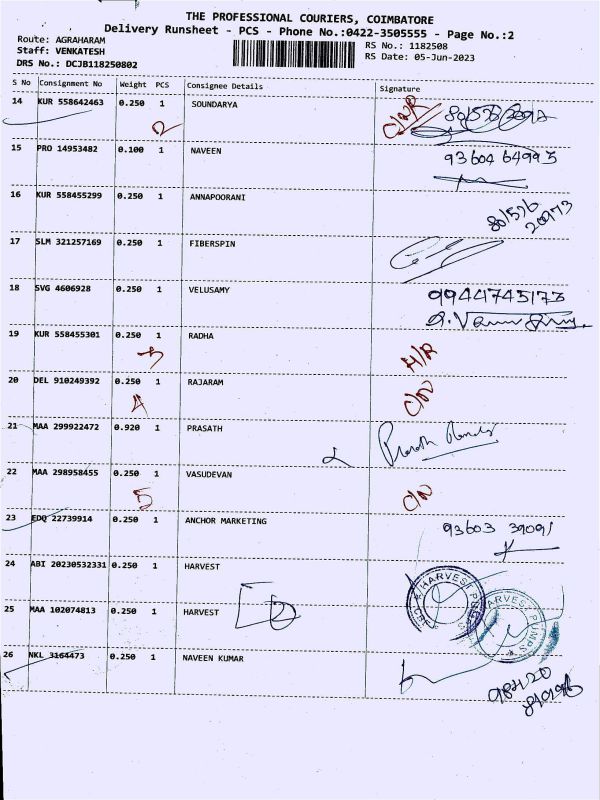 THE PROFESSIONAL COURIERS, COIMBATORE
Delivery Runsheet - PCS - Phone No.:0422-3505555 - Page No.:2
Route: AGRAHARAM
RS No.: 1182508
Staff: VENKATESH
RS Date: 05-Jun-2023
DRS No.: DCJB118250802
S No Consignment No Weight PCS Consignee Details Signature
14 KUR 558642463 0.250 1 SOUNDARYA
2
15 PRO 14953482 0.100 1 NAVEEN 93604 64993
16 KUR 558455299 0.250 1 ANNAPOORANI
801576
20973
17 SLM 321257169 0.250 1 FIBERSPIN
18 SVG 4606928 0.250 1 VELUSAMY 9944745173
19 KUR 558455301 0.250 1 RADHA
3
20 DEL 910249392 0.250 1 RAJARAM
4
21 MAA 299922472 0.920 1 PRASATH Prasath
22 MAA 298958455 0.250 1 VASUDEVAN
5
23 EDQ 22739914 0.250 1 ANCHOR MARKETING 93603 39091
24 ABI 20230532331 0.250 1 HARVEST
HARVEST
25 MAA 102074813 0.250 1 HARVEST
HARVEST PUMPS
26 NKL 3164473 0.250 1 NAVEEN KUMAR